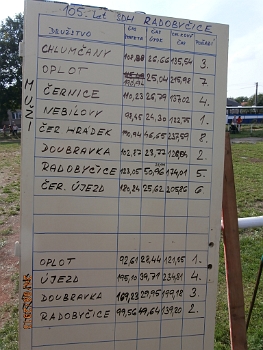 105. let SDH RADOBYČICE
DRUŽSTVO ČAS ČAS CELKOVÝ POŘADÍ
MUŽI
CHLUMČANY 26,66 135,54 3.
OPLOT 25,04 215,98 7.
ČERNICE 110,23 26,79 137,02 4.
NEBÍLOVY 98,45 24,30 122,75 1.
ČER HRÁDEK 190,94 46,65 237,59 8.
DOUBRAVKA 102,87 23,77 2.
RADOBYČICE 123,05 50,96 174,01 5.
ČER. ÚJEZD 180,24 25,62 205,86 6
OPLOT 92,61 28,44 121,05 1.
ÚJEZD 195,10 39,71 234,81 4.
DOUBRAVKA 169,23 29,95 199,18 3.
RADOBYČICE 99,56 39,64 139,20 2.